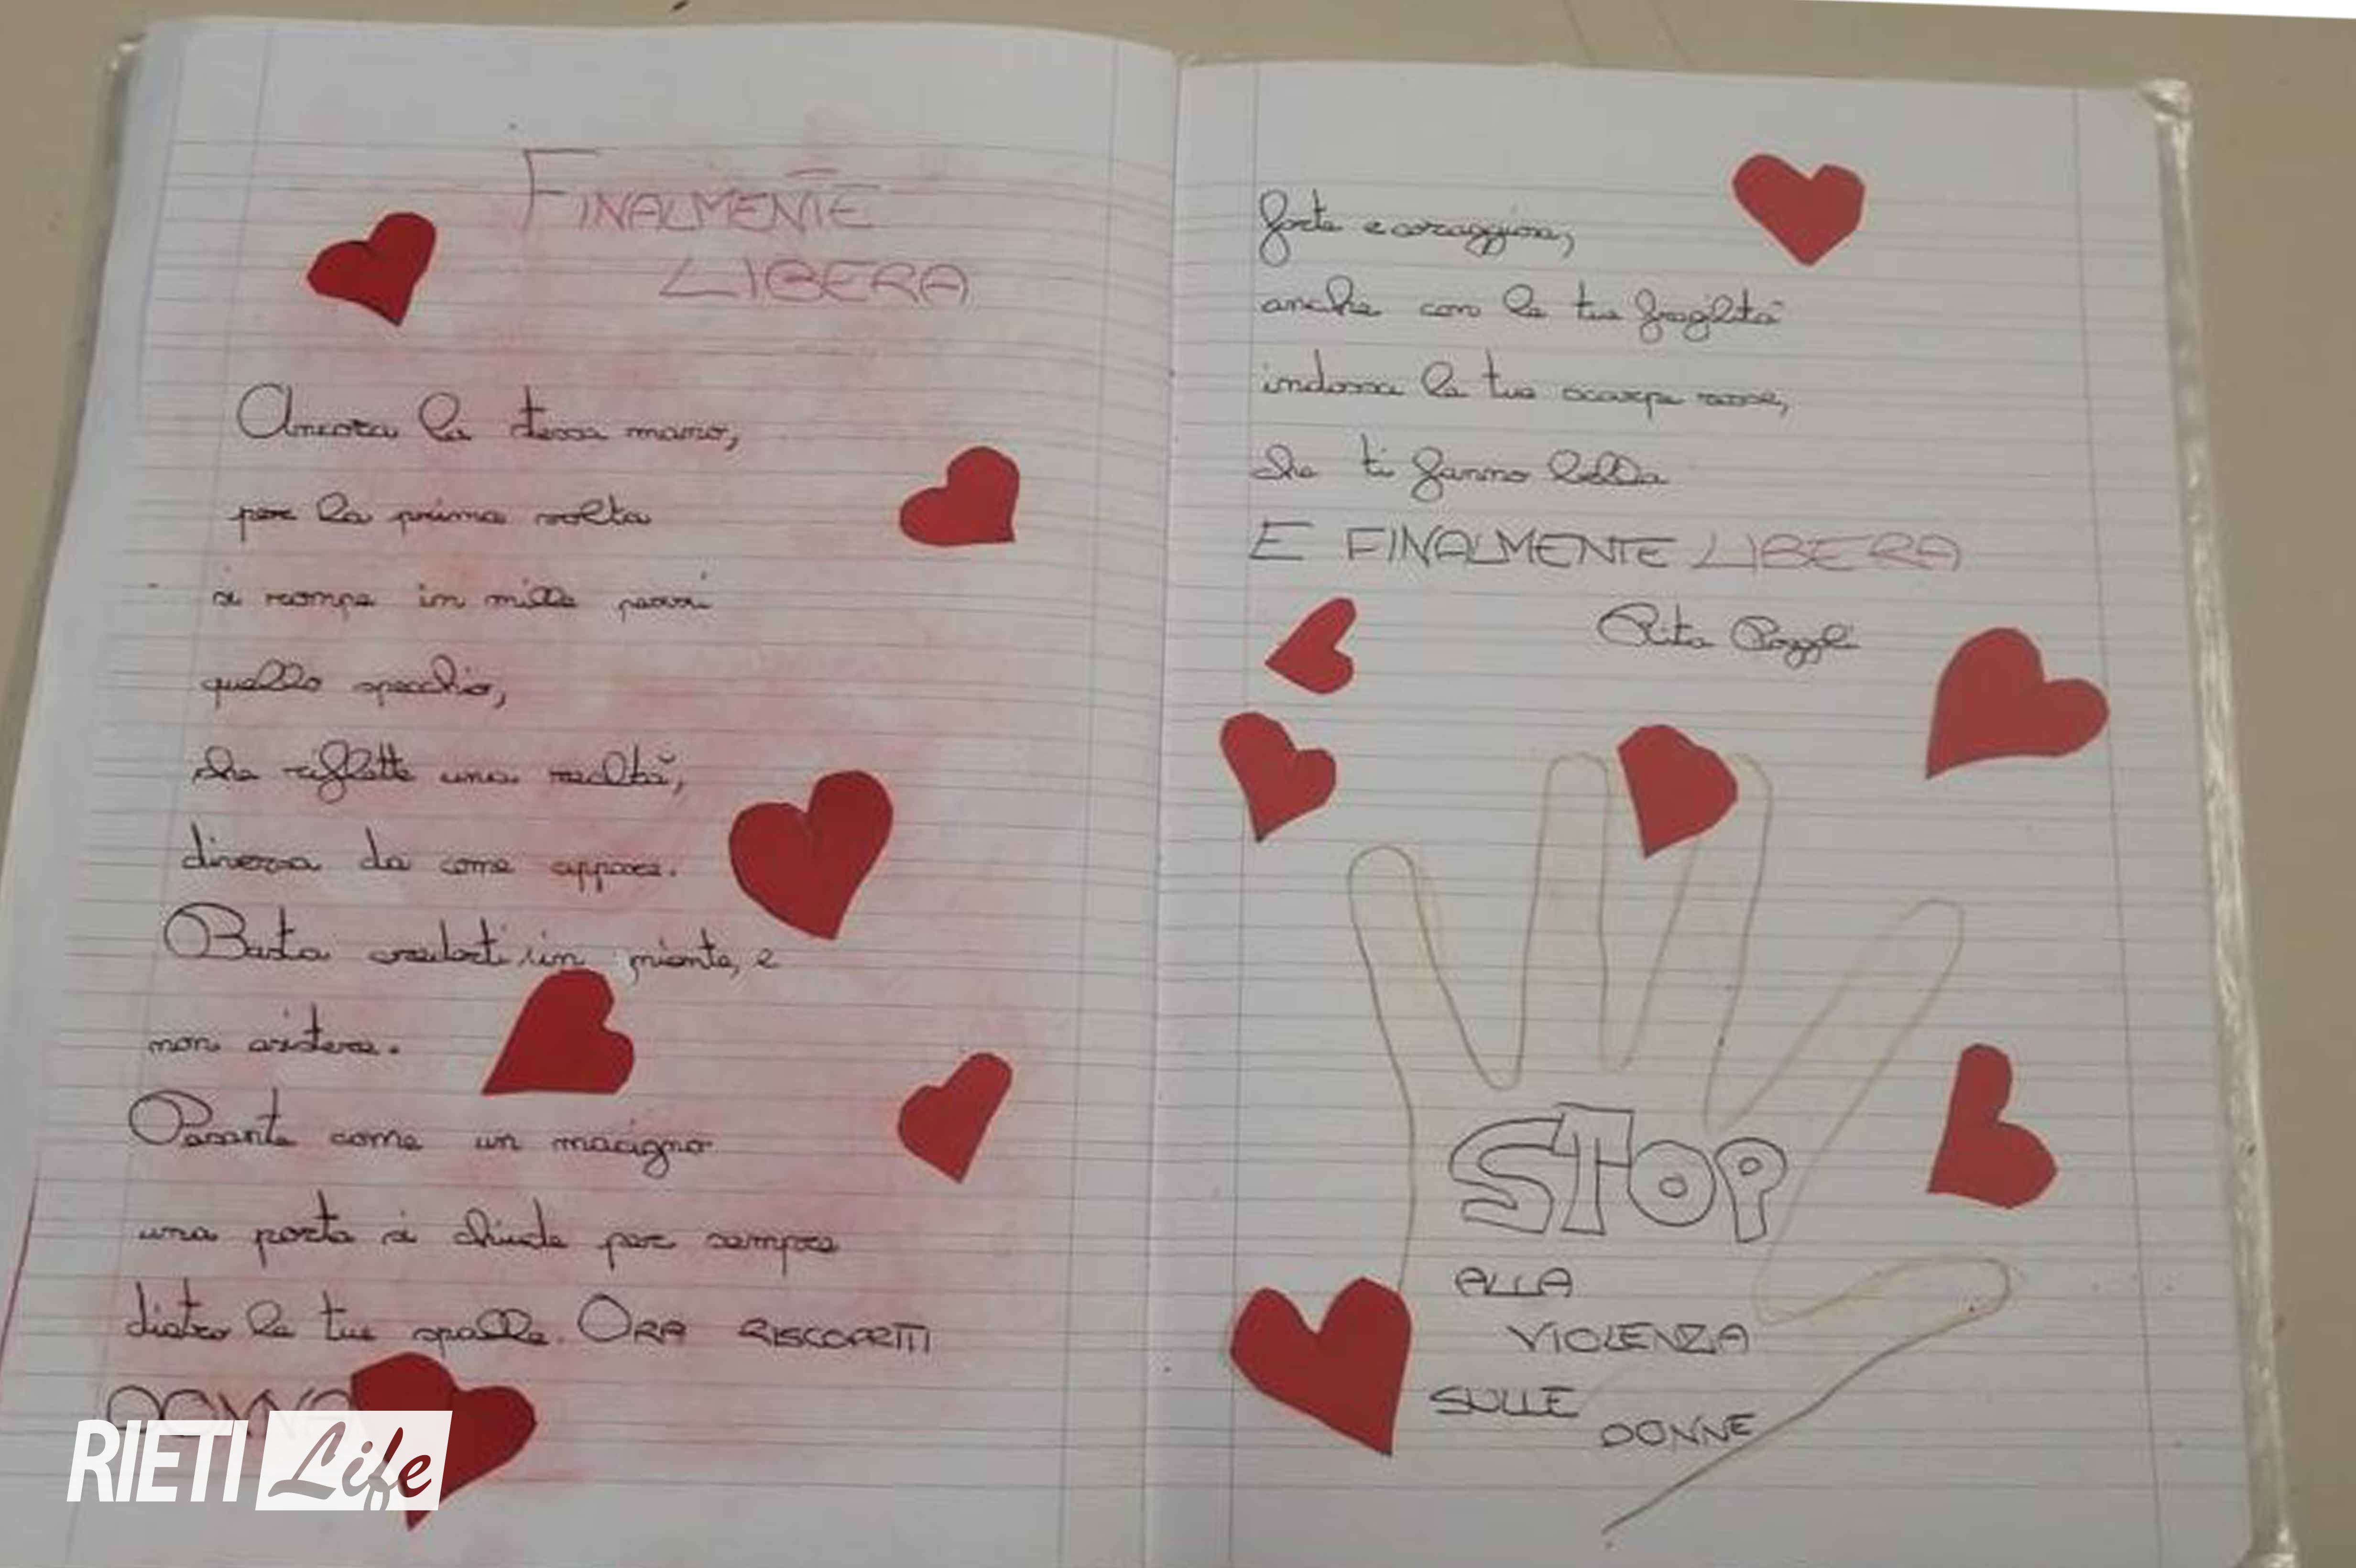 FINALMENTE
LIBERA
Ancora la stessa mano,
per la prima volta
si rompe in mille pezzi
quello specchio,
che riflette una realtà,
diversa da come appare.
Basta crederti un niente, e
non esistere.
Pesante come un macigno
una porta si chiude per sempre
dietro le tue spalle. ORA RISCOPRITI
DONNA
RIETI Life
forte e coraggiosa,
anche con le tue fragilità
indossa le tue scarpe rosse,
che ti fanno bella
E FINALMENTE LIBERA
Rita
STOP
ALLA
VIOLENZA
SULLE
DONNE